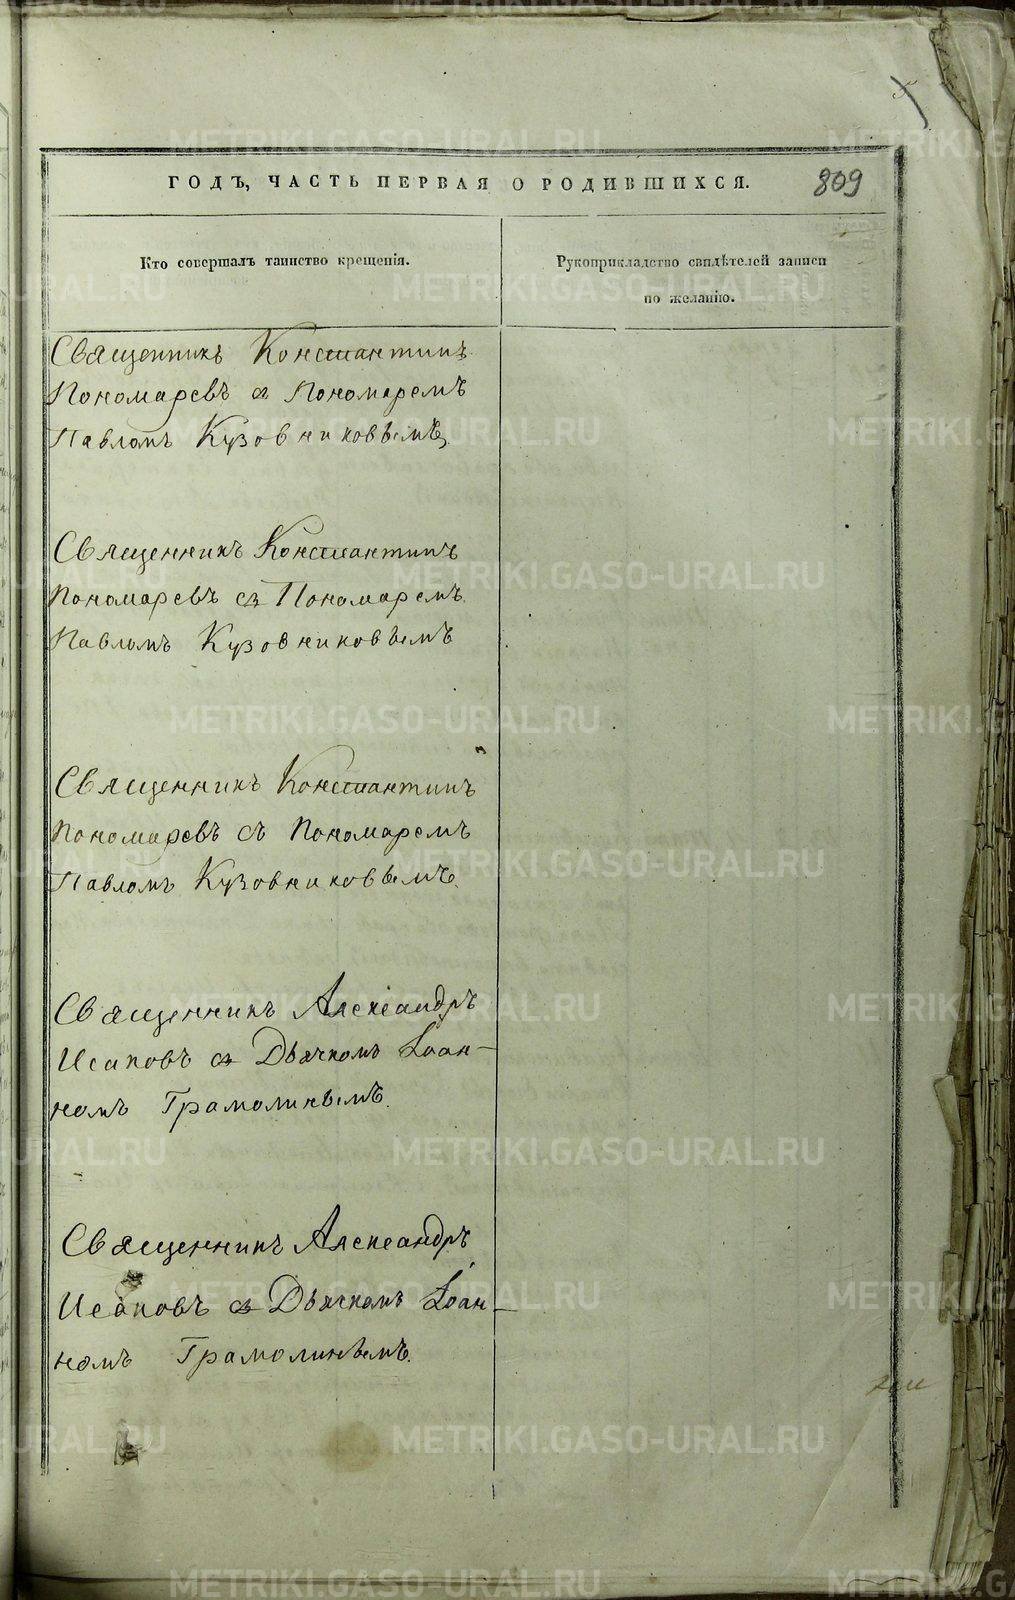 ГОДЪ, ЧАСТЬ ПЕРВАЯ О РОДИВШИХСЯ.
809
Кто совершалъ таинство крещенія.
Рукоприкладство свидѣтелей записи
по желанію.
Священникъ Константинъ
Пономаревъ съ Пономаремъ
Павломъ Кузовниковымъ.
Священникъ Константинъ
Пономаревъ съ Пономаремъ
Павломъ Кузовниковымъ
Священникъ Константинъ
Пономаревъ съ Пономаремъ
Павломъ Кузовниковымъ.
Священникъ Александръ
Исаковъ съ Дьячкомъ Іоан-
номъ Грамолинымъ.
Священникъ Александръ
Исаковъ съ Дьячкомъ Іоан-
номъ Грамолинымъ.
METRIKI.GASO-URAL.RU